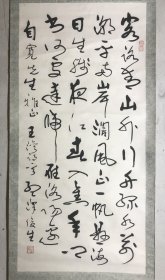 客路青山外行舟绿水前
潮平两岸阔风正一帆悬海
日生残夜江春入旧年乡
书何处达归雁洛阳边
自宽先生雅正 王湾诗